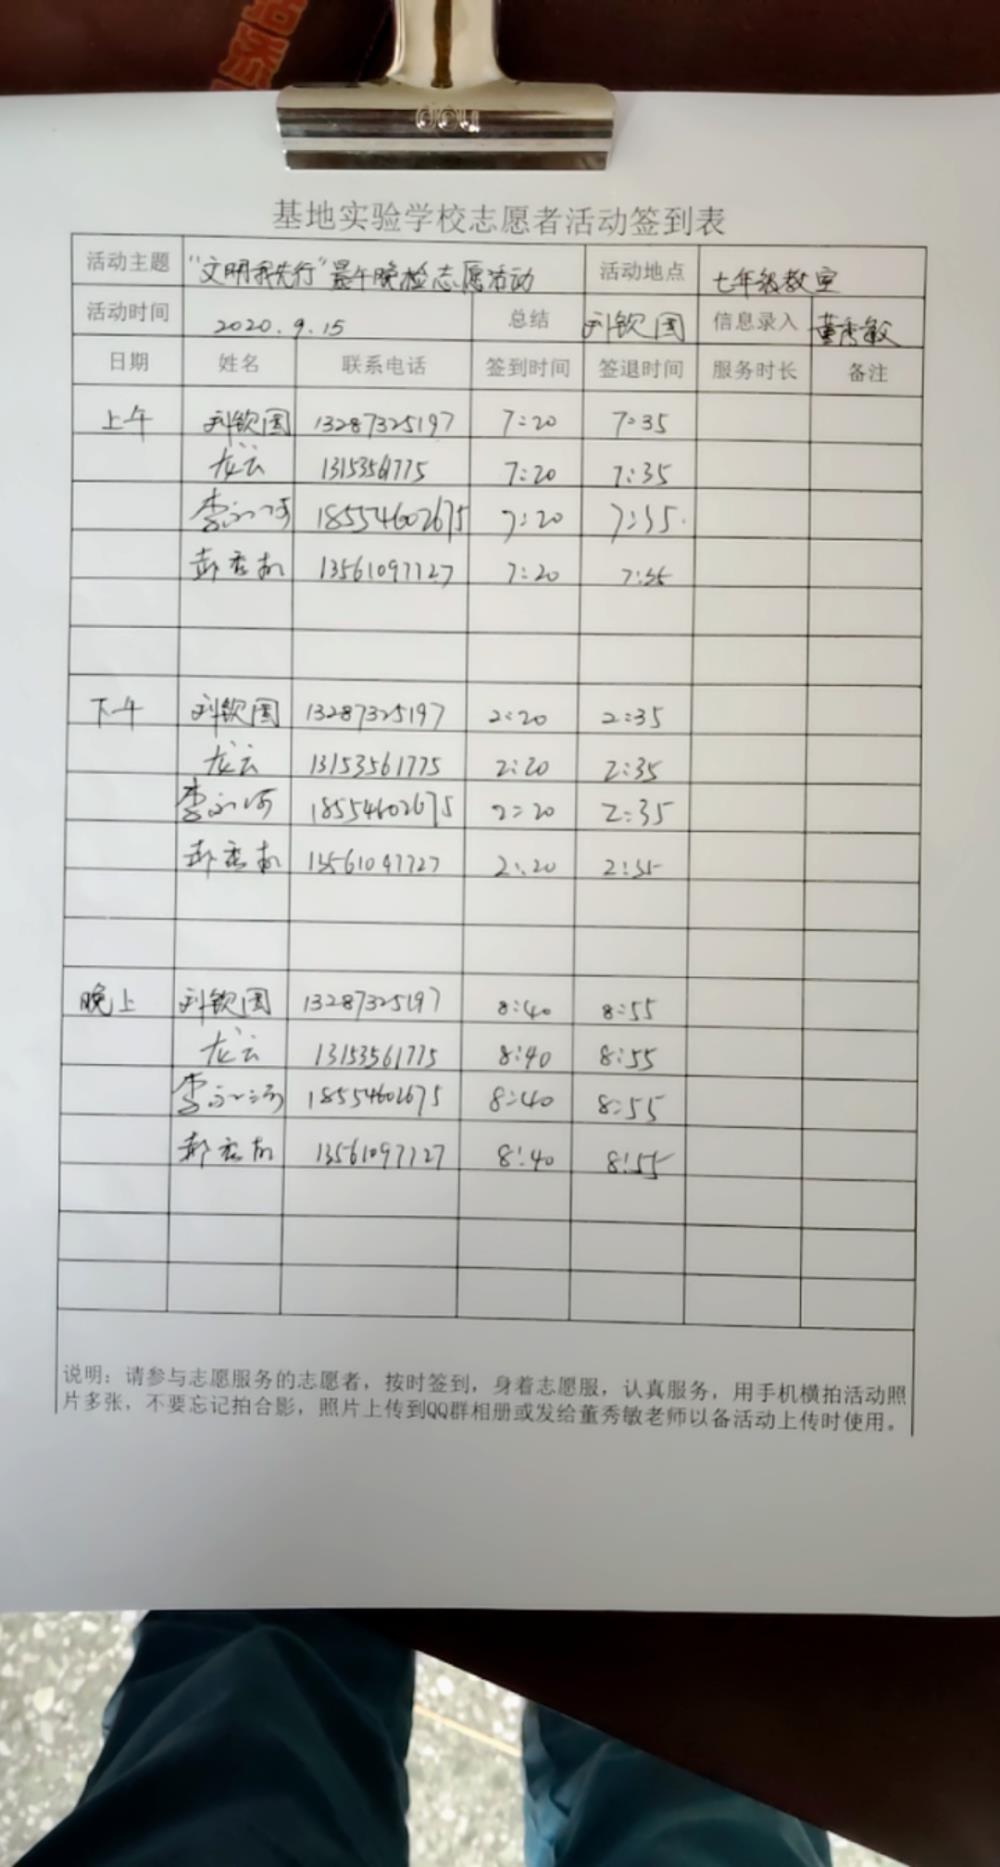 deli
基地实验学校志愿者活动签到表
活动主题 "文明我先行"晨午晚检志愿活动 活动地点 七年级教室
活动时间 2020.9.15 总结 刘钦国 信息录入 董秀敏
日期 姓名 联系电话 签到时间 签退时间 服务时长 备注
上午 刘钦国 13287325197 7:20 7:35
龙云 13153561775 7:20 7:35
李 18554602675 7:20 7:35
13561097127 7:20 7:35
下午 刘钦国 13287325197 2:20 2:35
龙云 13153561775 2:20 2:35
李 18554602675 2:20 2:35
13561097727 2:20 2:35
晚上 刘钦国 13287325197 8:40 8:55
龙云 13153561775 8:40 8:55
李 18554602675 8:40 8:55
13561097127 8:40 8:55
说明：请参与志愿服务的志愿者，按时签到，身着志愿服，认真服务，用手机横拍活动照
片多张，不要忘记拍合影，照片上传到QQ群相册或发给董秀敏老师以备活动上传时使用。